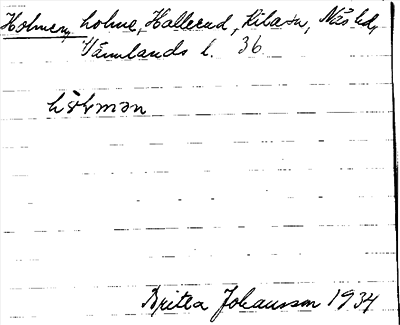 Holmen, holme, Hallerud, Kila sn, Näs hd,
Värmlands l. 36
hòlmən
Britta Johansson 1934